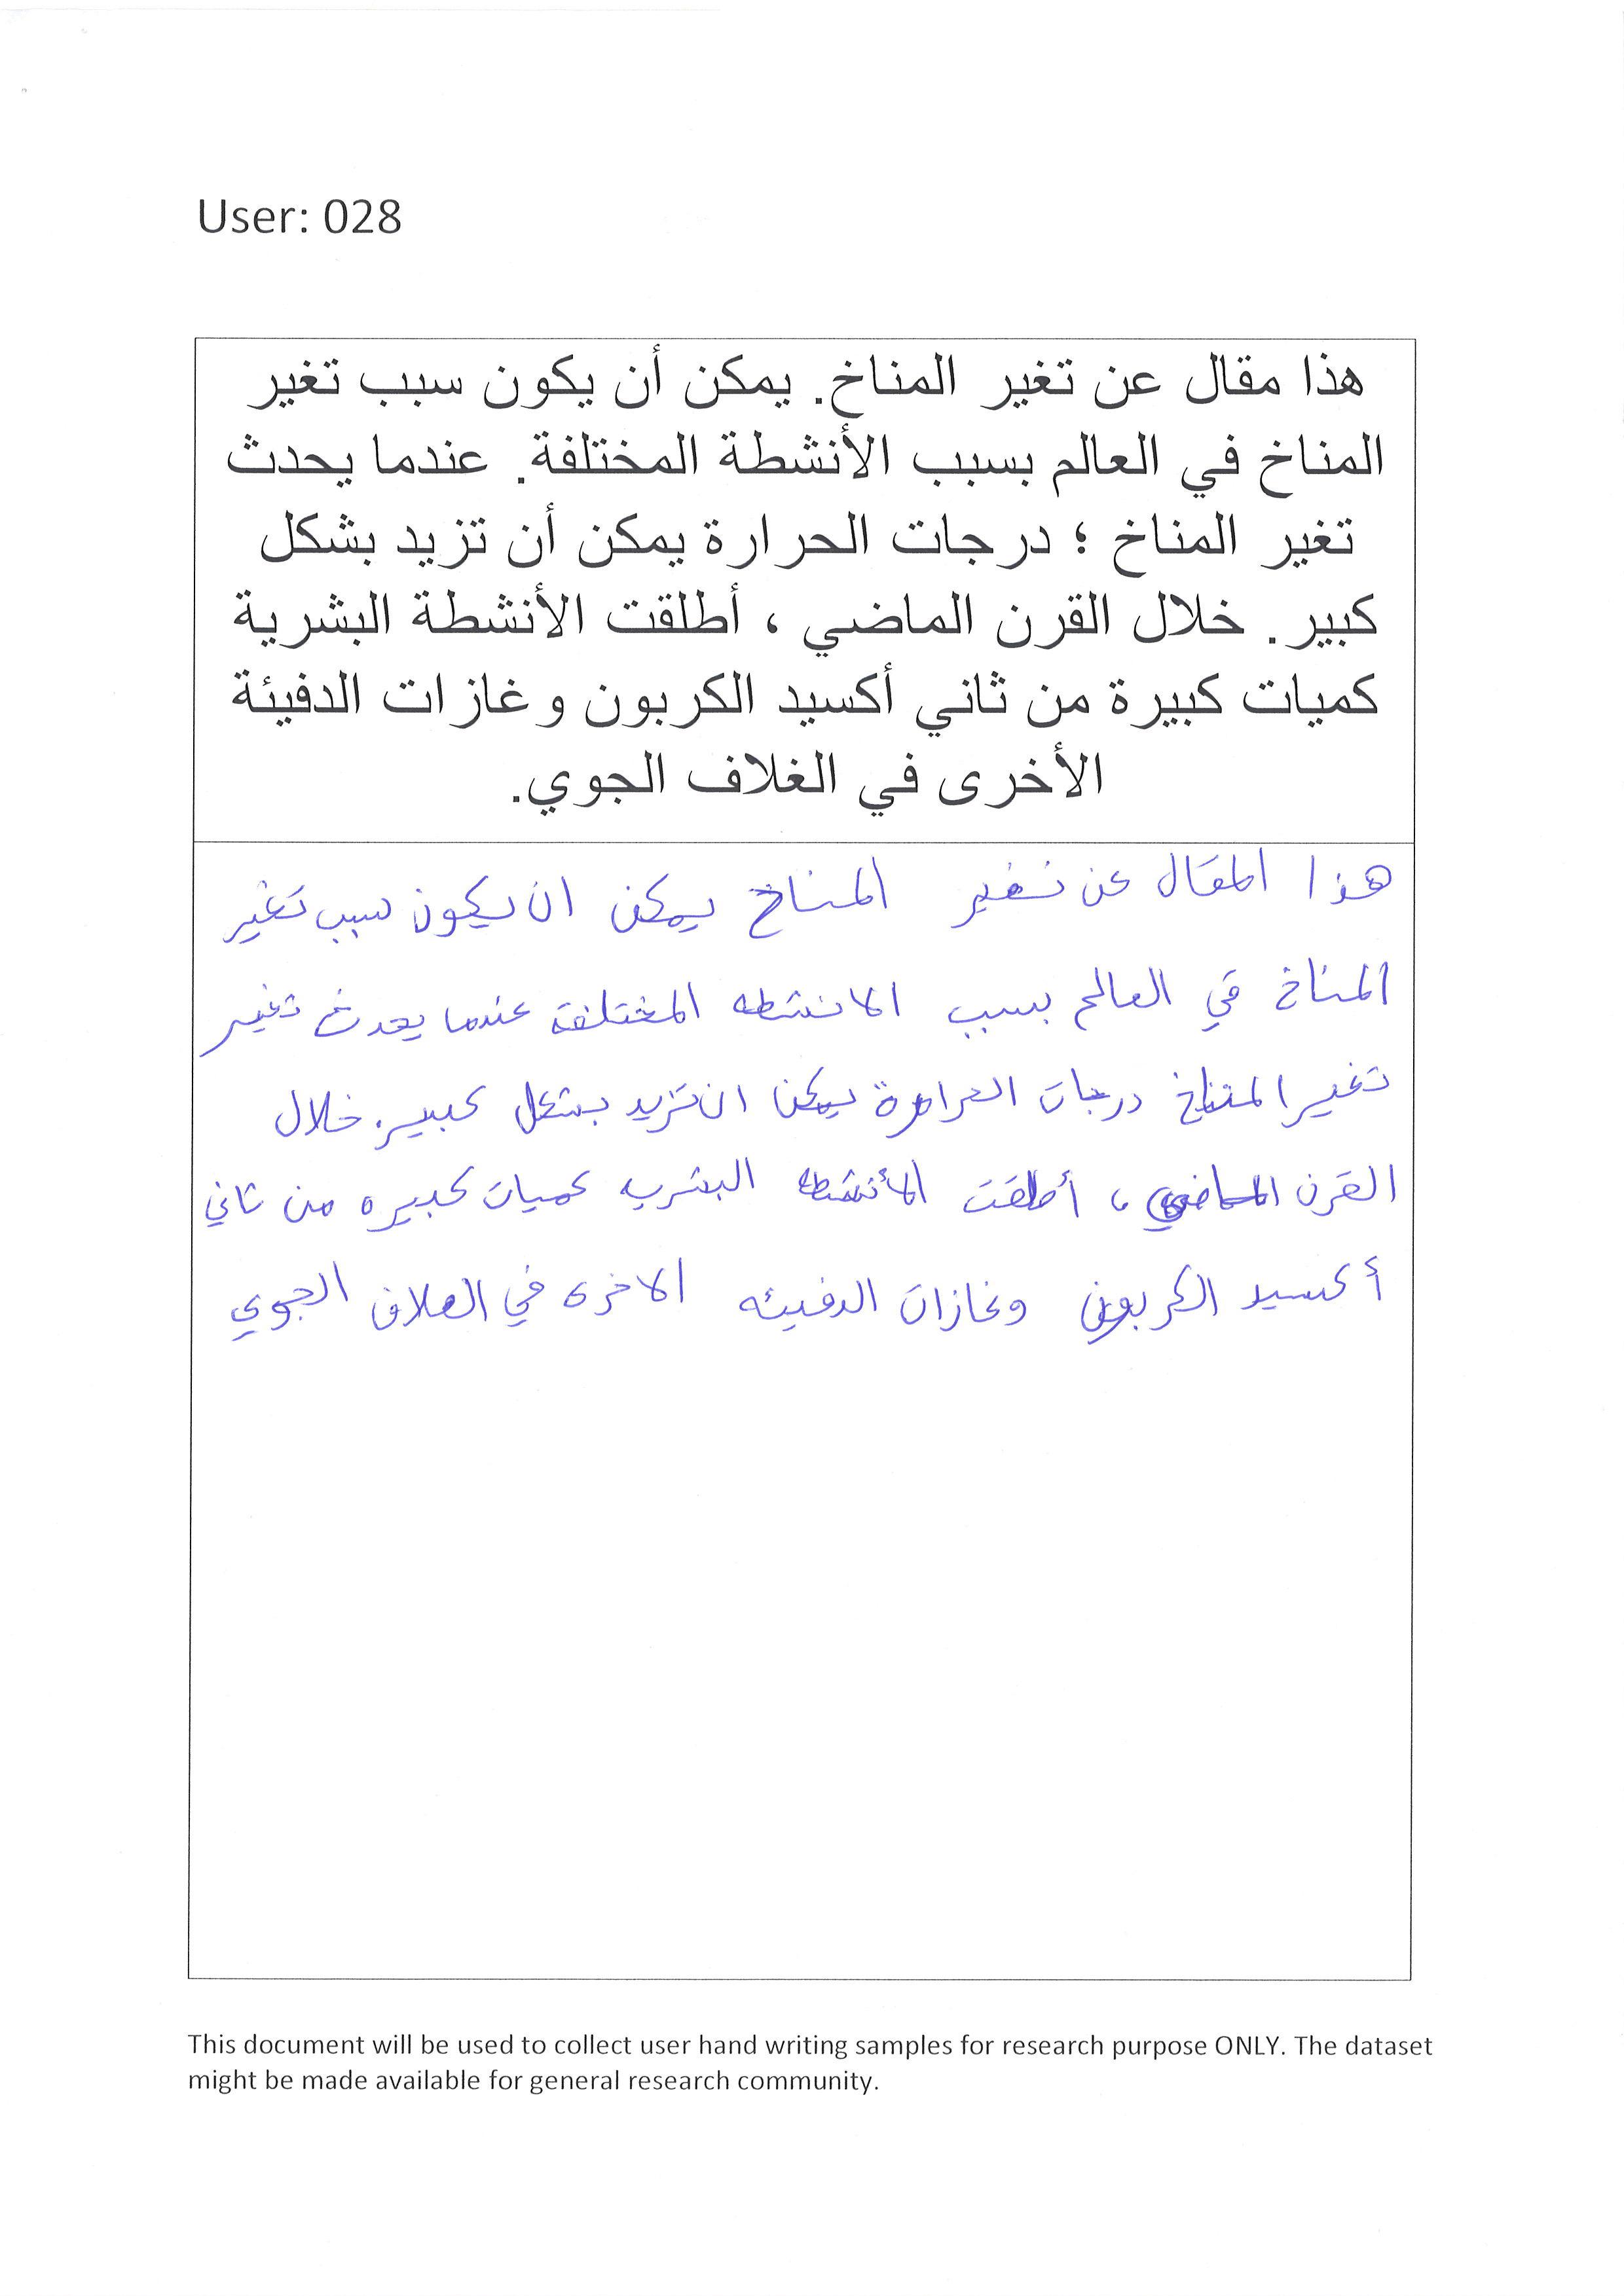 User: 028
هذا مقال عن تغير المناخ. يمكن أن يكون سبب تغير
المناخ في العالم بسبب الأنشطة المختلفة. عندما يحدث
تغير المناخ ؛ درجات الحرارة يمكن أن تزيد بشكل
كبير. خلال القرن الماضي ، أطلقت الأنشطة البشرية
كميات كبيرة من ثاني أكسيد الكربون و غازات الدفيئة
الأخرى في الغلاف الجوي.
هذا المقال عن تغير المناخ يمكن ان يكون سبب تغير
المناخ في العالم بسبب الانشطه المختلفة عندما يحدث تغير
تغير المناخ درجات الحرارة يمكن ان تزيد بشكل كبير. خلال
القرن الماضي ، أطلقت الأنشطه البشريه كميات كبيره من ثاني
أكسيد الكربون وغازات الدفيئه الاخرى في الغلاف الجوي
This document will be used to collect user hand writing samples for research purpose ONLY. The dataset
might be made available for general research community.